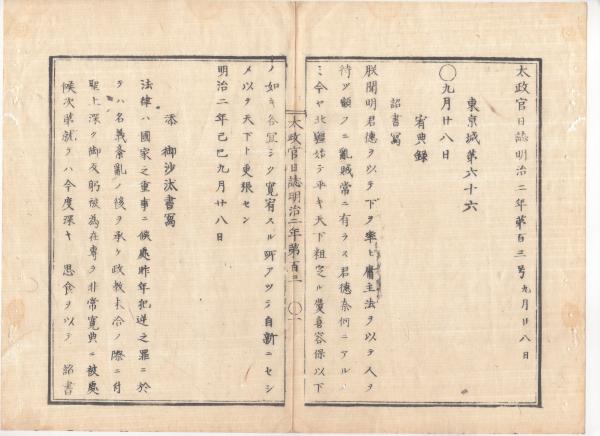 太政官日誌明治二年第百三号九月廿八日
東京城第六十六
〇九月廿八日
宥典録
詔書寫
朕聞明君德ヲ以テ下ヲ率ヒ庸主法ヲ以テ人ヲ
待ツ顧フニ亂賊常ニ有ラス君德奈何ニアルノ
ミ今ヤ北疆始テ平キ天下粗定ル慶喜容保以下
太政官日誌明治二年第百三
〇一
ノ如キ各宜シク寛宥スル所アツテ自新ニセシ
メ以テ天下ト更張セン
明治二年己巳九月廿八日
添 御沙汰書寫
法律ハ國家之重事ニ候處昨年犯逆之罪ニ於
テハ名義紊亂ノ後ヲ承ケ政教未合ノ際ニ付
聖上深ク御反躬被為在専ラ非常寛典ニ被處
候次第就テハ今度深キ 思食ヲ以テ 詔書